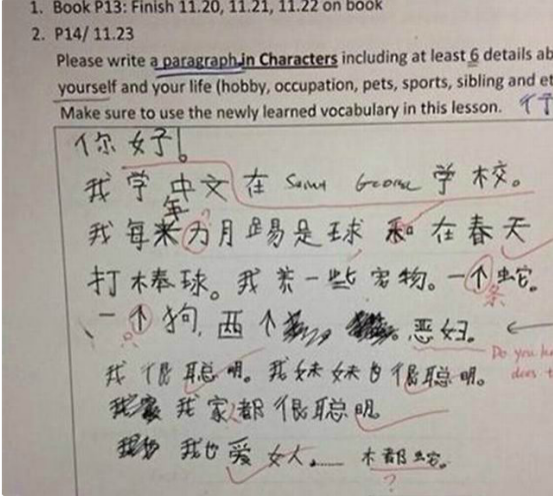 1. Book P13: Finish 11.20, 11.21, 11.22 on book
2. P14/ 11.23
Please write a paragraph in Characters including at least 6 details ab
yourself and your life (hobby, occupation, pets, sports, sibling and et
Make sure to use the newly learned vocabulary in this lesson.
你好!
我学中文在 Saint George 学校。
年
我每来 月踢足球和在春天
打棒球。我养一些宠物。一个蛇。
条
一个狗,西个 。恶妇。
Do you
does
我很聪明。我妹妹也很聪明。
我家都很聪明
我也爱女人...... 木都蛇。
?